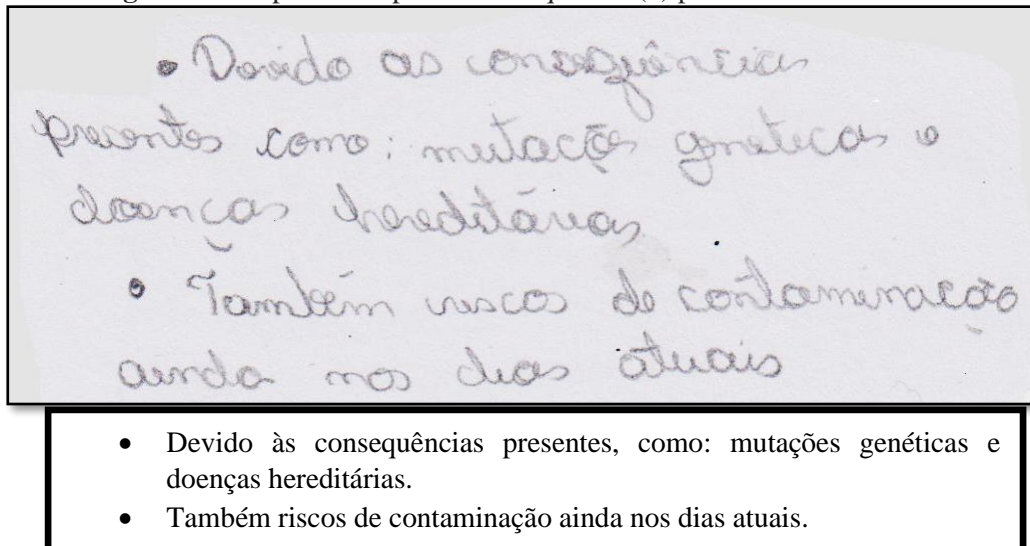 • Devido as consequências
presentes como: mutações geneticas e
doenças hereditárias
• Também riscos de contaminação
ainda nos dias atuais
• Devido às consequências presentes, como: mutações genéticas e
doenças hereditárias.
• Também riscos de contaminação ainda nos dias atuais.